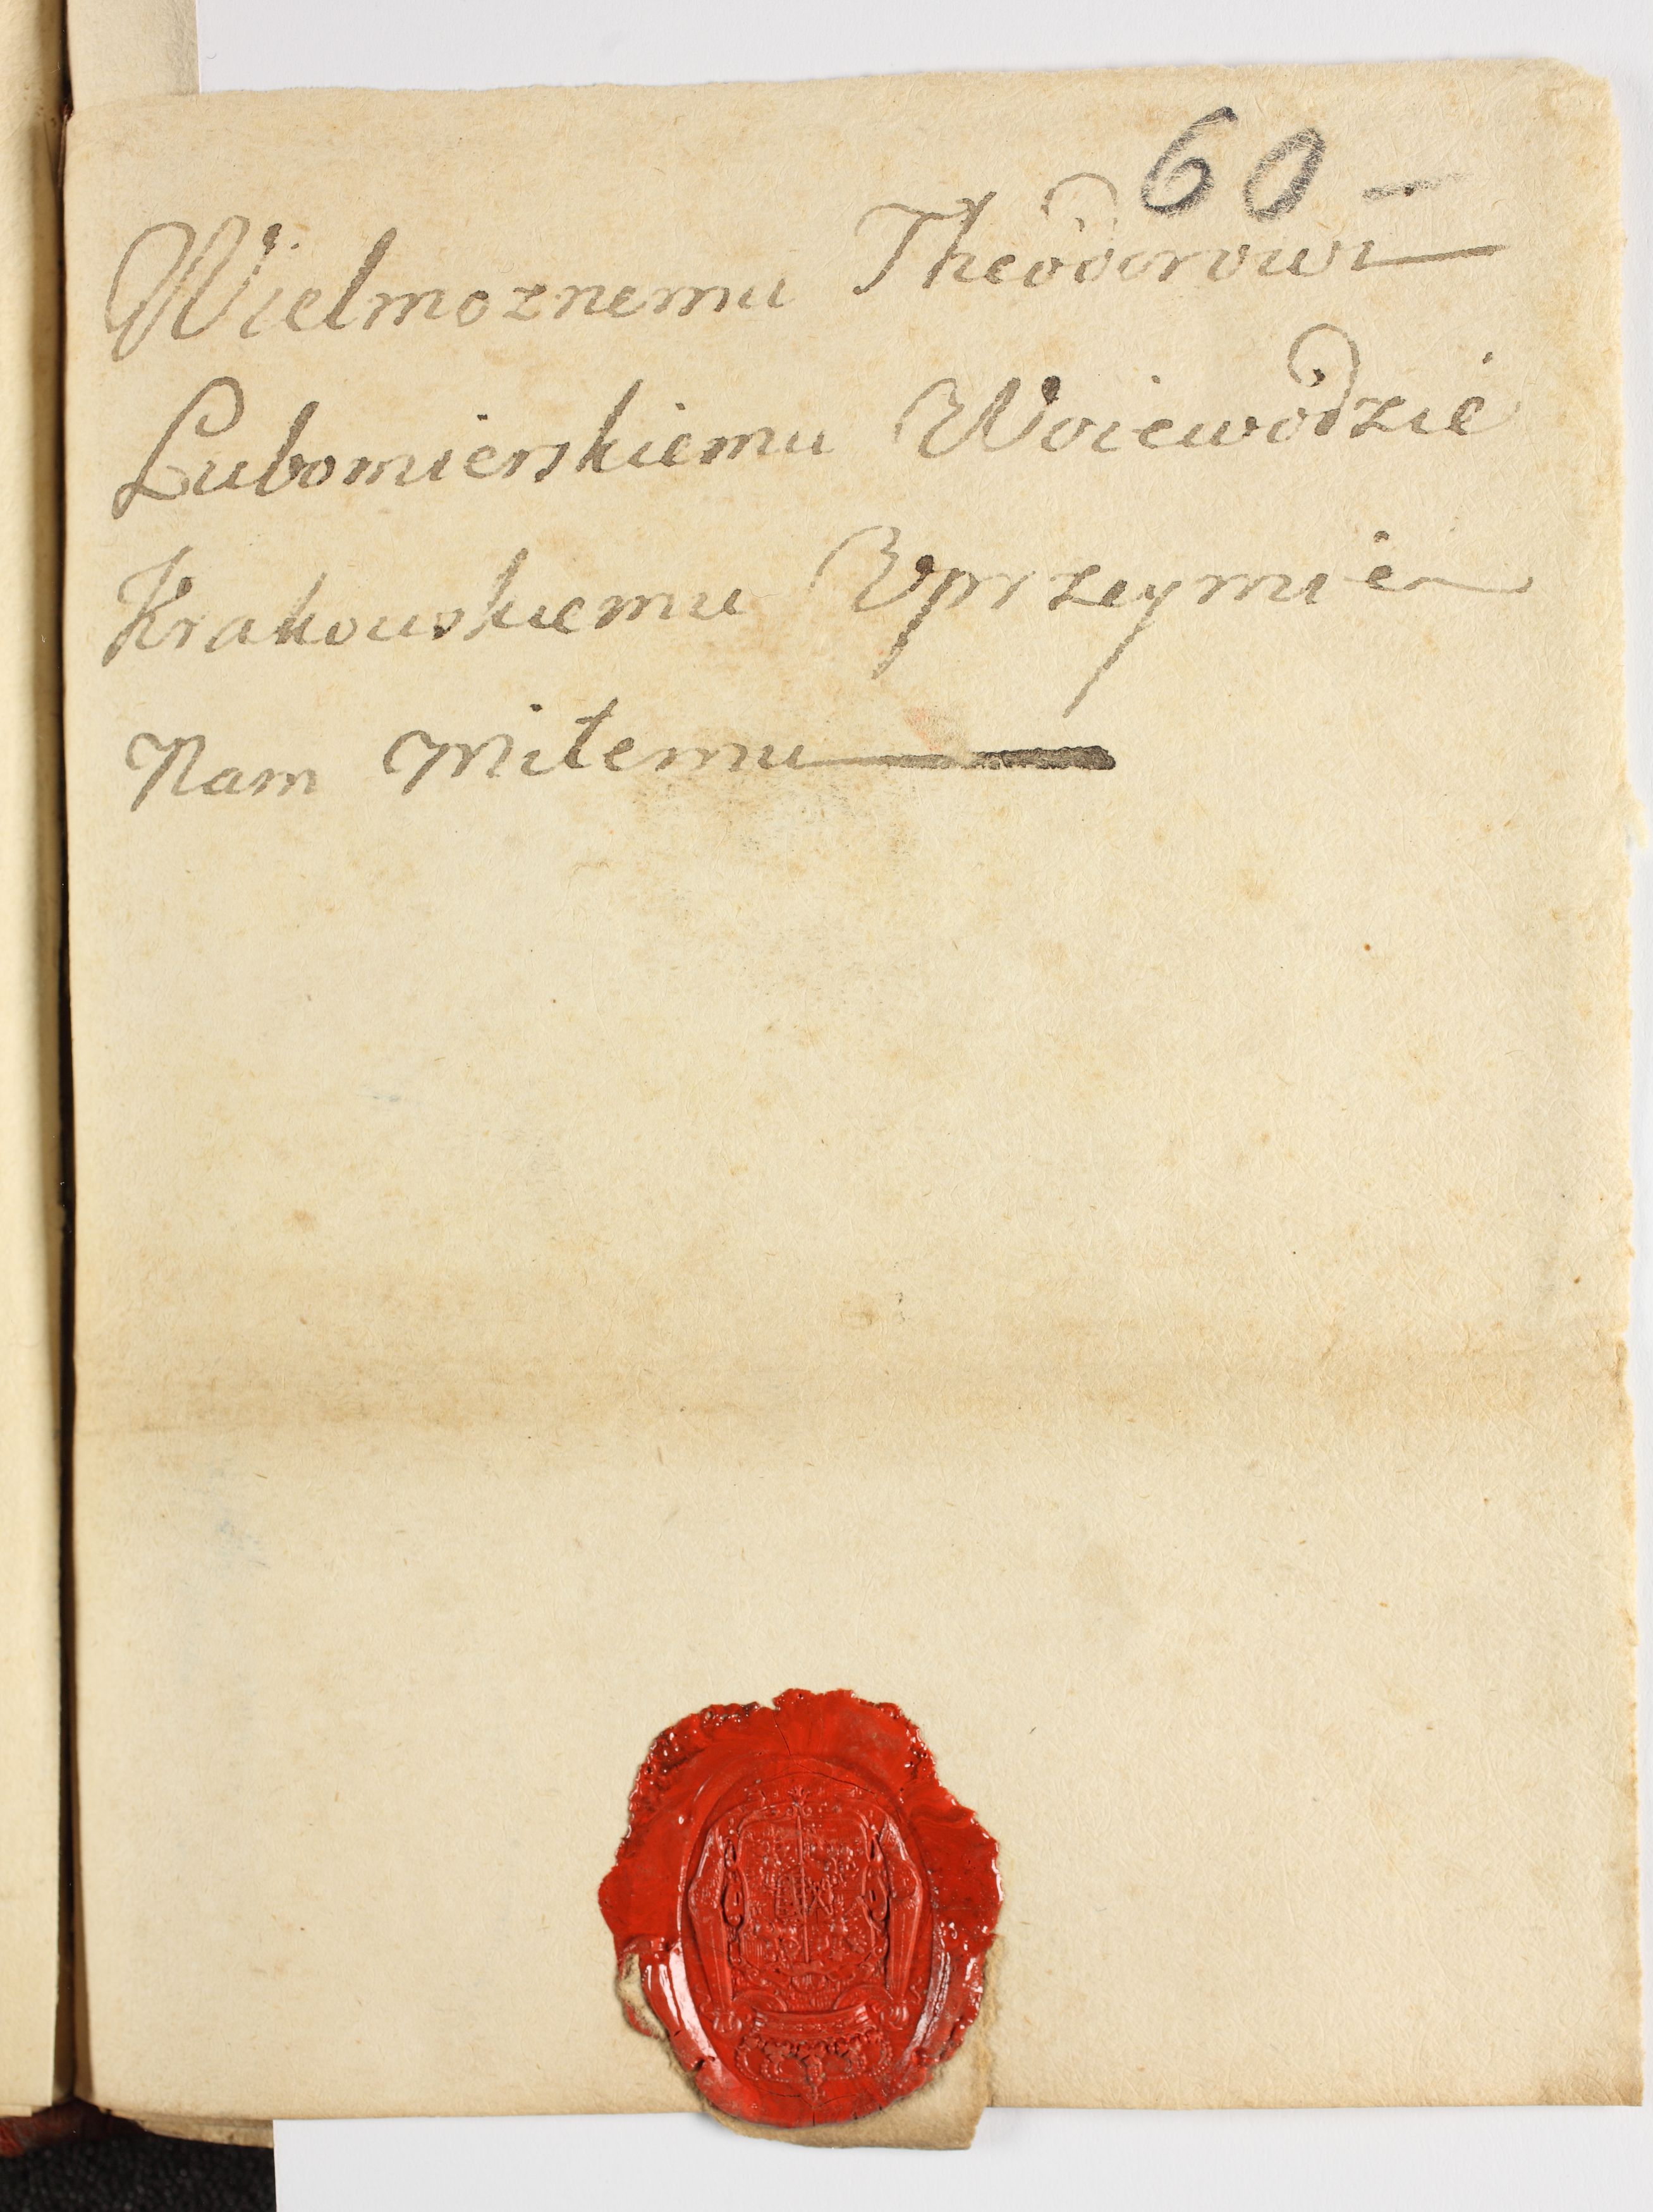 60 —
Wielmoznemu Theodorowi
Lubomierskiemu Woiewodzie
Krakowskiemu Vprzeymie
Nam Miłemu